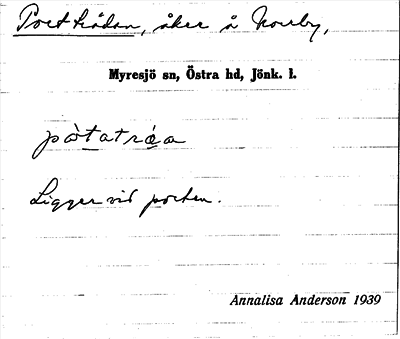 Portträdan, åker å Norrby,
Myresjö sn, Östra hd, Jönk. l.
pò̱tatrá̱a
Ligger vid porten.
Annalisa Anderson 1939